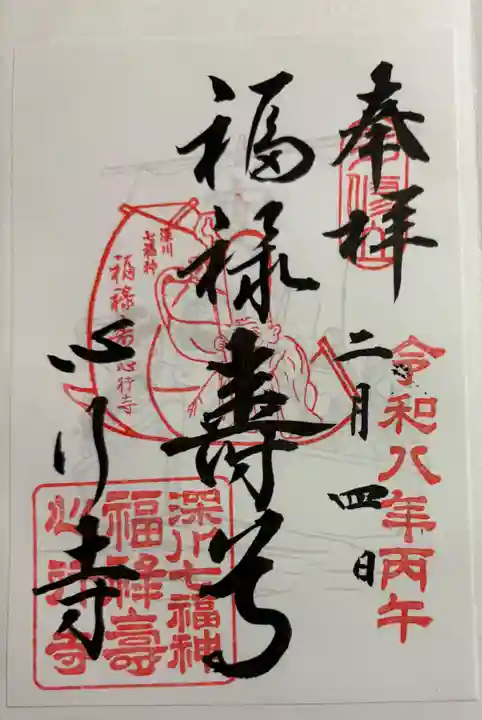 奉拝
令和八年丙午
二月四日
福禄寿尊
心行寺
深川
七福神
福禄寿心行寺
深川七福神
福禄壽
心行寺